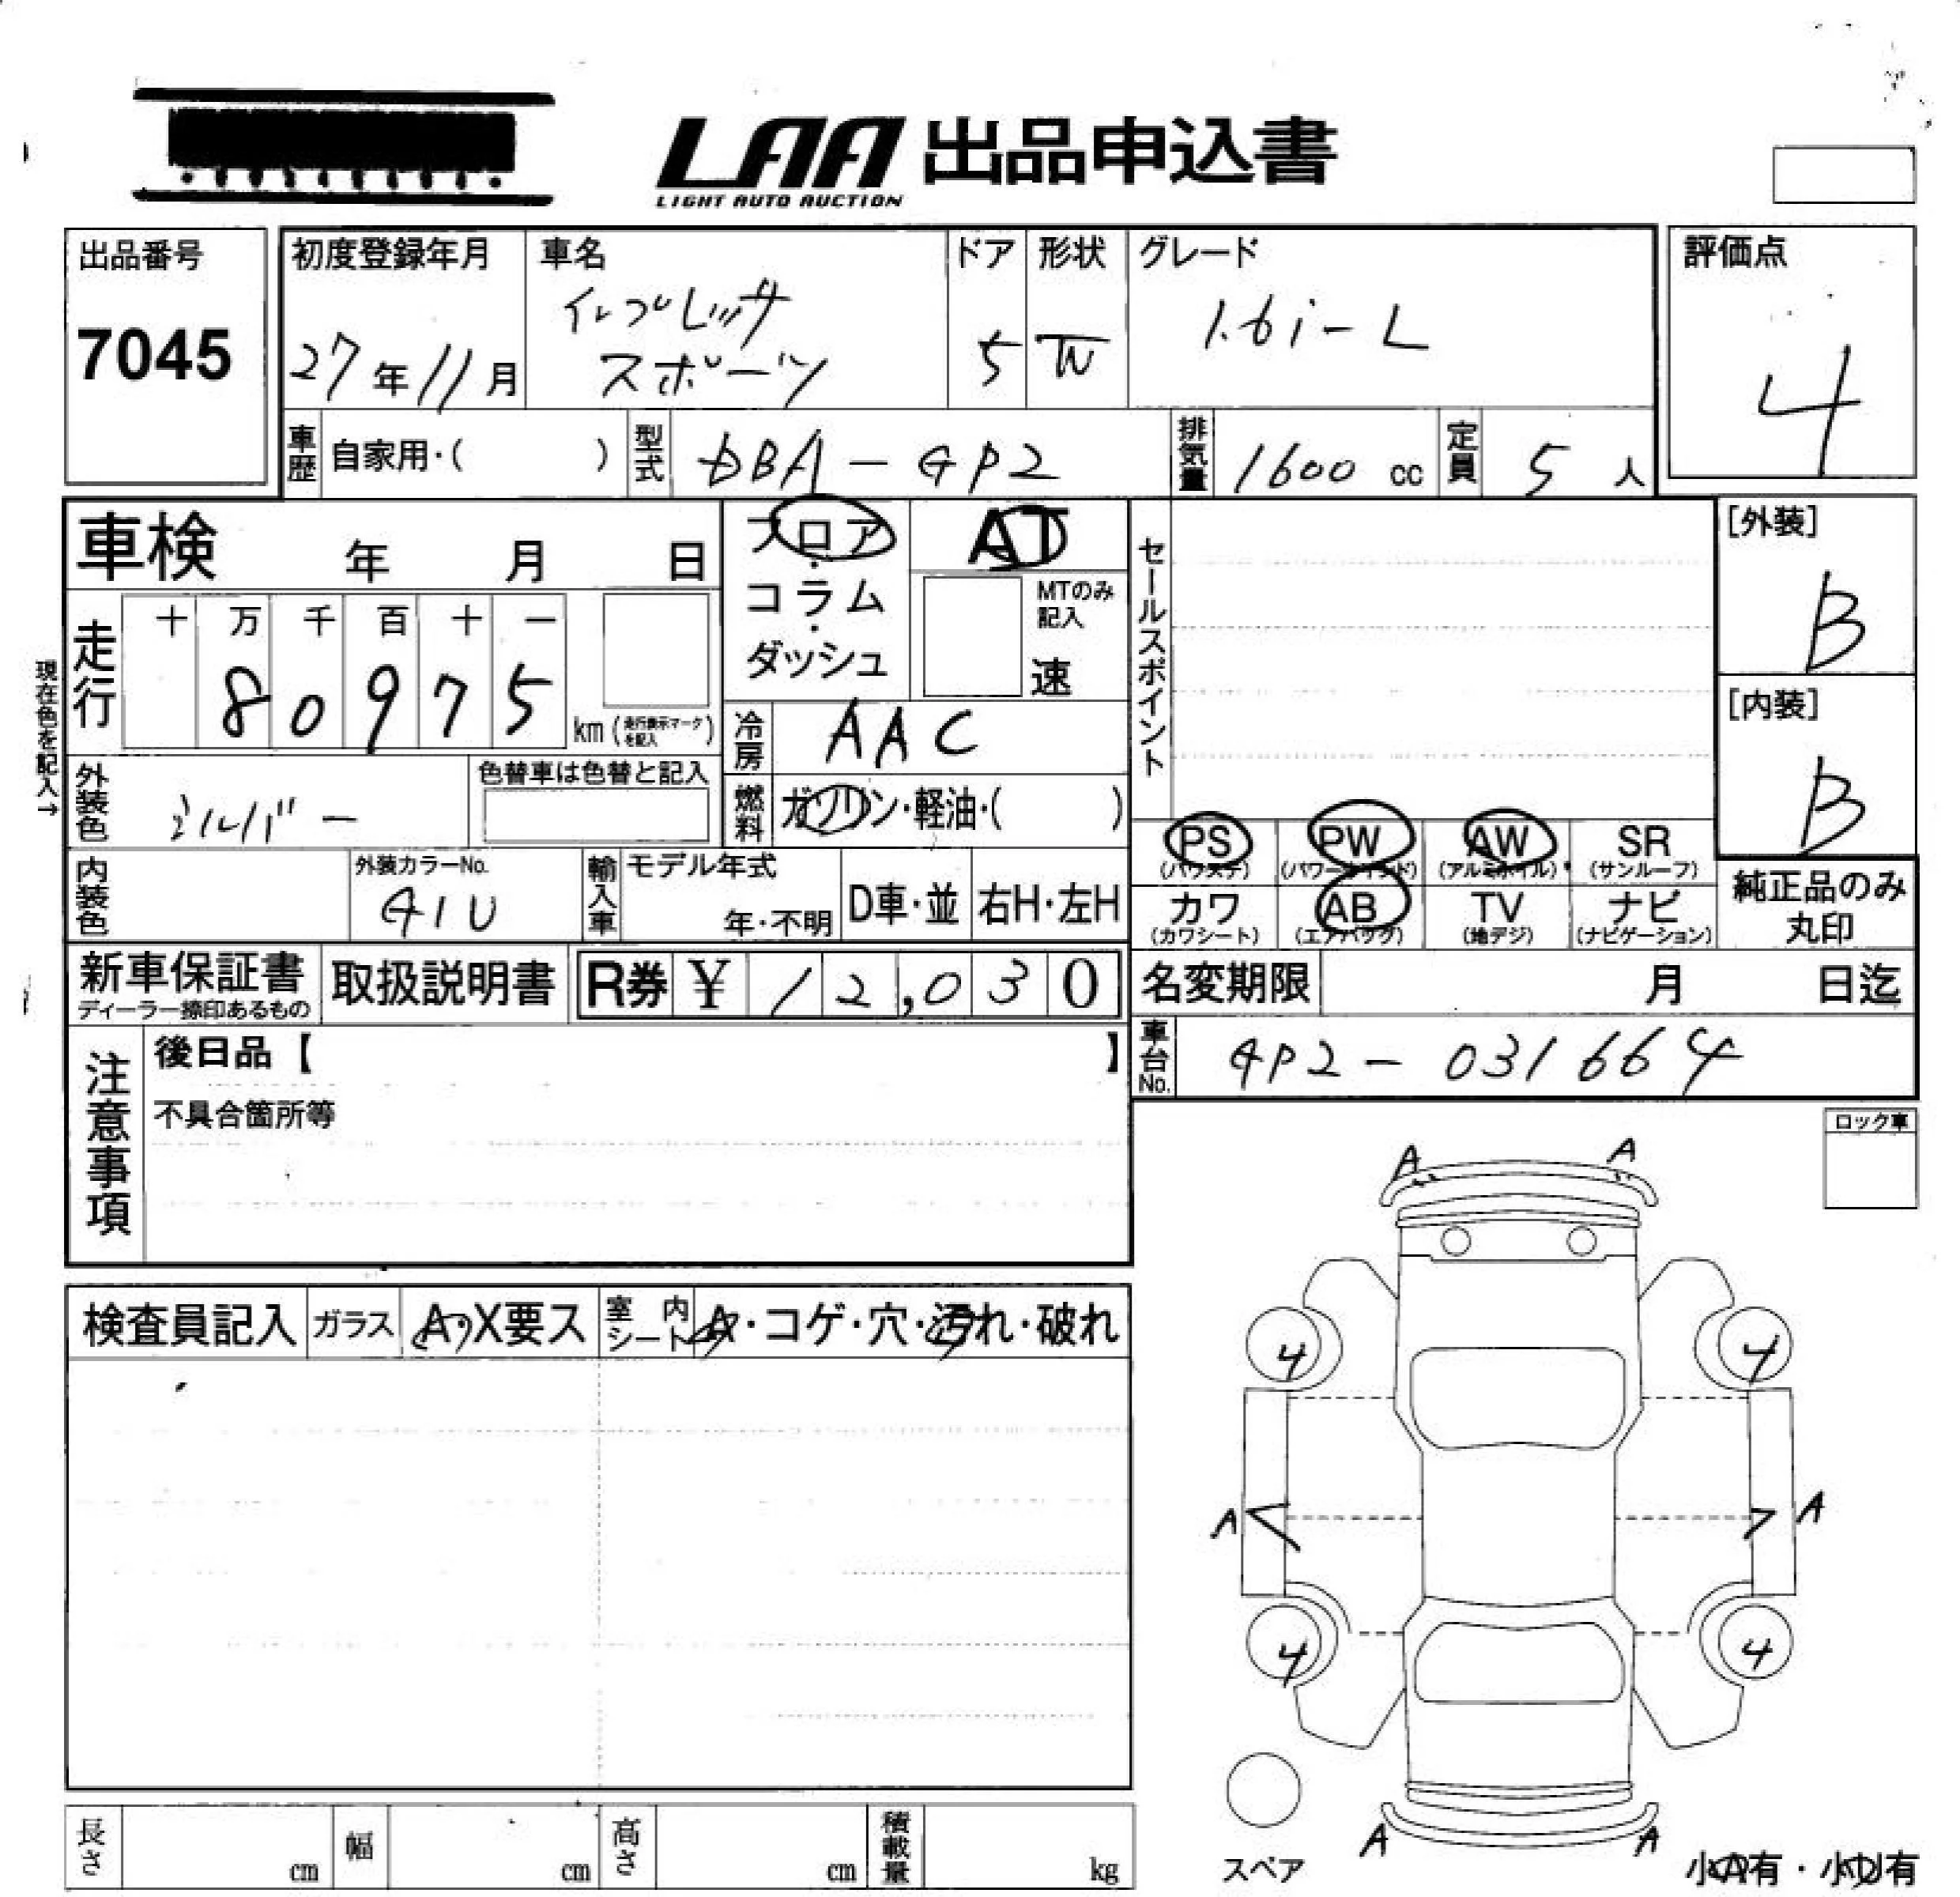 LAA 出品申込書
LIGHT AUTO AUCTION
出品番号
7045
初度登録年月
27年11月
車名
インプレッサ
スポーツ
ドア
5
形状
W
グレード
1.6i-L
評価点
4
車歴 自家用・( )
型式 DBA-GP2
排気量 1600 cc
定員 5 人
車検 年 月 日
フロア・コラム・ダッシュ
AT
MTのみ記入
速
セールスポイント
[外装]
B
[内装]
B
現在色を記入→
走行
十 万 千 百 十 一
8 0 9 7 5
km (走行表示マークを記入)
冷房 AAC
外装色 シルバー
色替車は色替と記入
燃料 ガソリン・軽油・( )
PS (パワステ)
PW (パワーウインド)
AW (アルミホイル)
SR (サンルーフ)
内装色
外装カラーNo.
G1U
輸入車
モデル年式
年・不明
D車・並
右H・左H
カワ (カワシート)
AB (エアバッグ)
TV (地デジ)
ナビ (ナビゲーション)
純正品のみ
丸印
新車保証書
ディーラー捺印あるもの
取扱説明書
R券 ¥ 12,030
名変期限 月 日迄
車台No. GP2-031664
注意事項
後日品【 】
不具合箇所等
ロック車
検査員記入
ガラス A・X要ス
室内シート A・コゲ・穴・汚れ・破れ
A A
4 4
A A
4 4
A A
スペア
小A有・小U有
長さ cm
幅 cm
高さ cm
積載量 kg